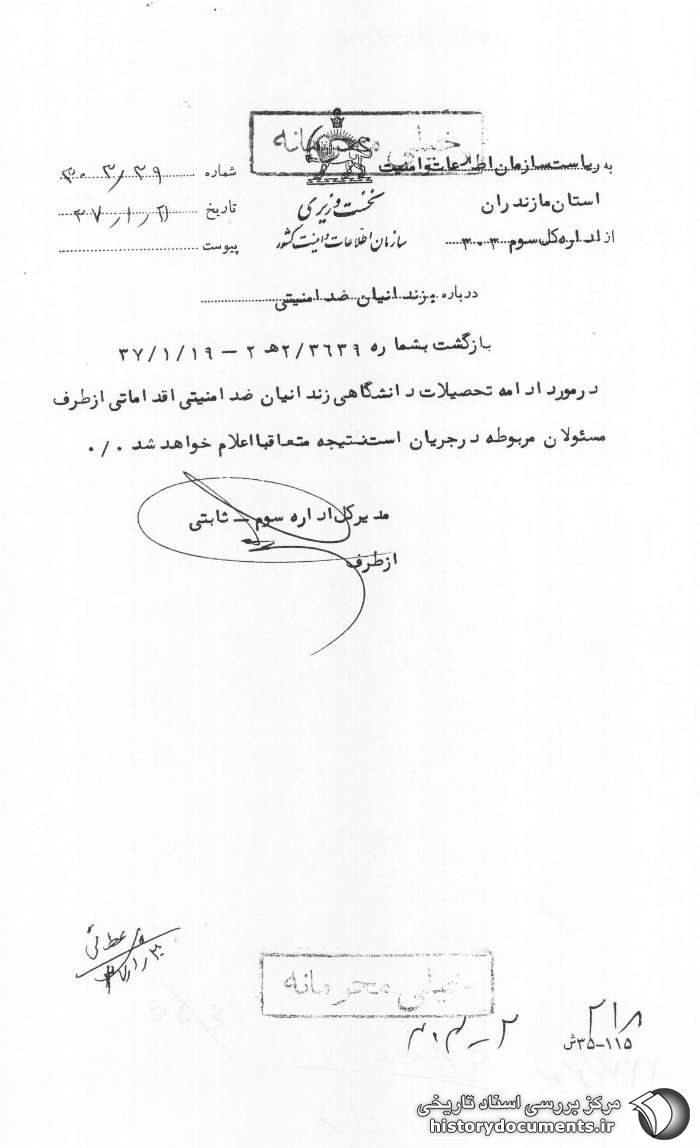 خیلی محرمانه
به ریاست سازمان اطلاعات و امنیت
استان مازندران
از اداره کل سوم ۳۰۳
نخست وزیری
سازمان اطلاعات و امنیت کشور
شماره
تاریخ
پیوست
درباره زندانیان ضد امنیتی
بازگشت بشماره ۲/۳۶۳۹ هـ ۲ – ۳۷/۱/۱۹
درمورد ادامه تحصیلات دانشگاهی زندانیان ضد امنیتی اقداماتی ازطرف
مسئولان مربوطه درجریان است نتیجه متعاقبا اعلام خواهد شد ۰/۰
مدیرکل اداره سوم – ثابتی
ازطرف
خیلی محرمانه
۲۱۸
۳۵-۱۱۵ش
مرکز بررسی اسناد تاریخی
historydocuments.ir